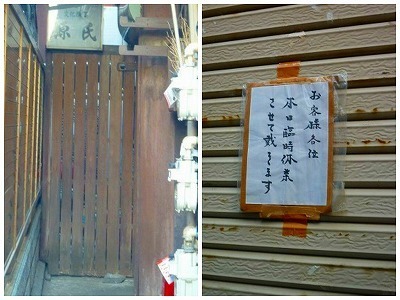 源氏
お客様各位
本日臨時休業
させて戴きます